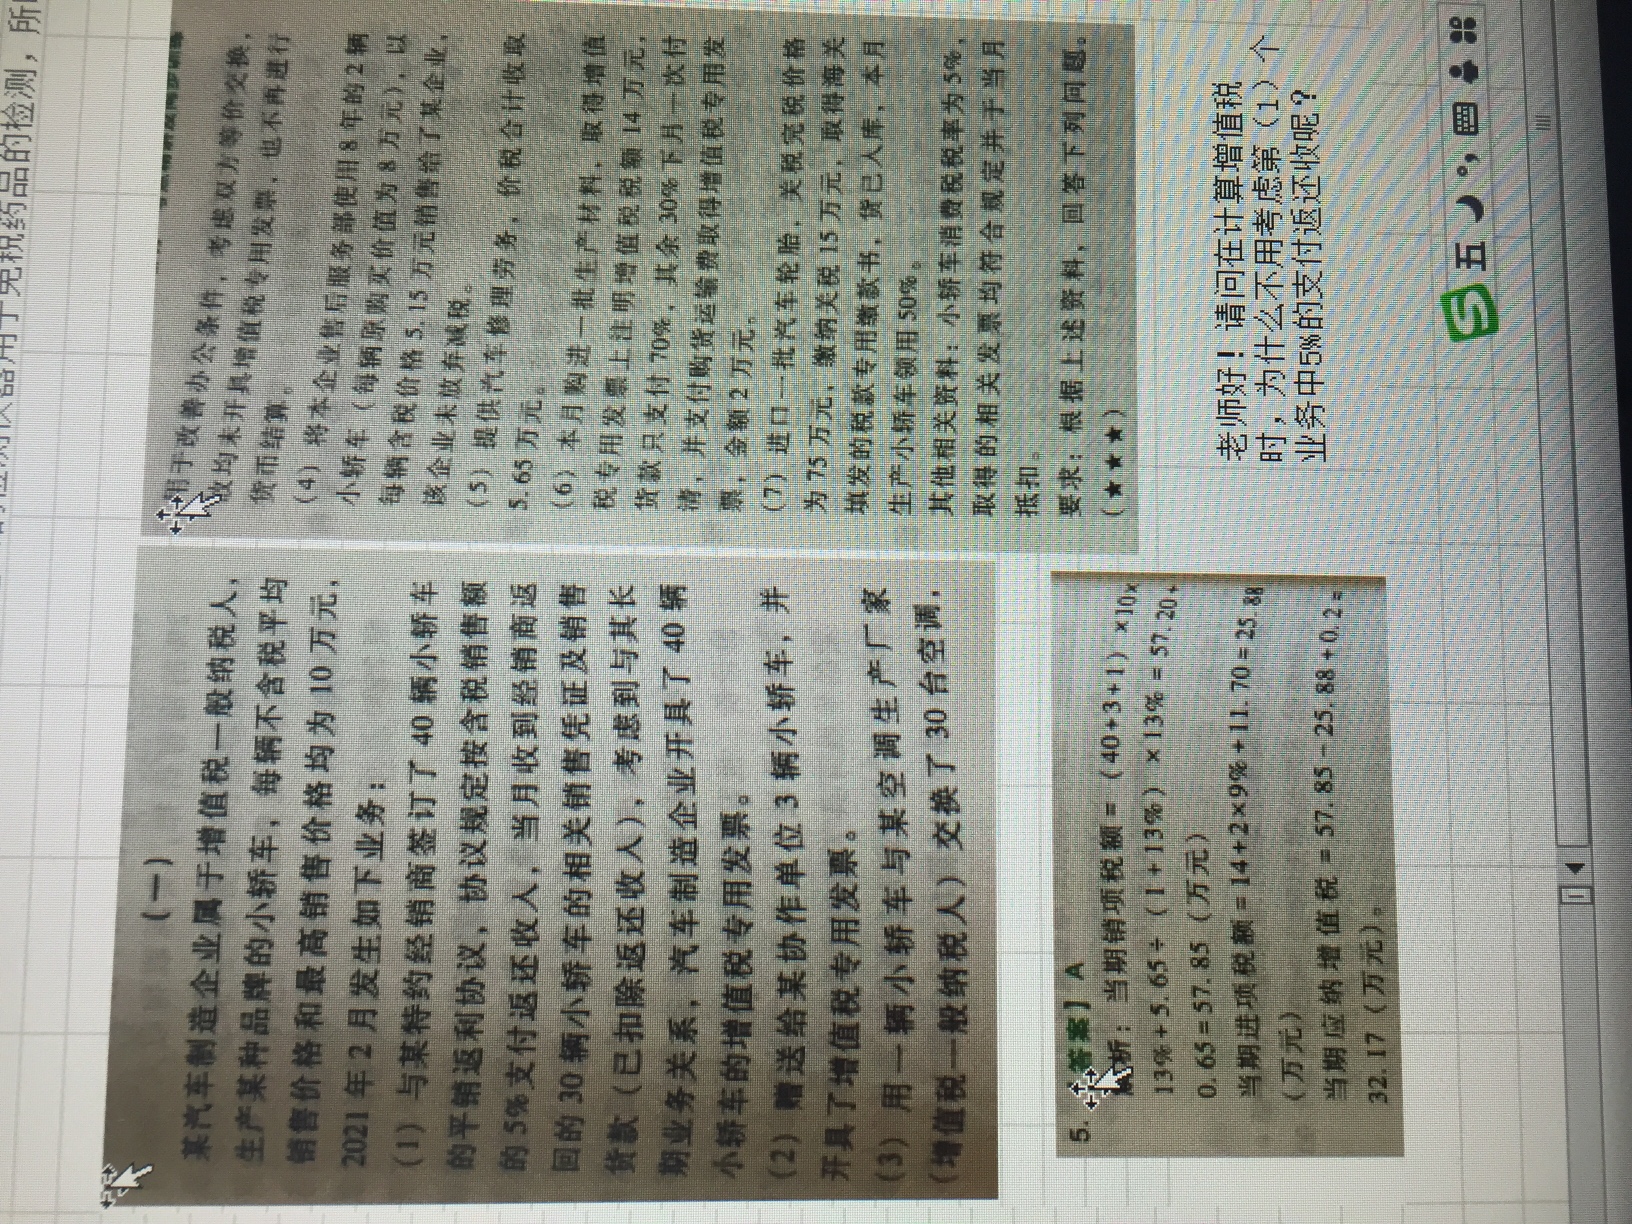 （一）
某汽车制造企业属于增值税一般纳税人，
生产某种品牌的小轿车，每辆不含税平均
销售价格和最高销售价格均为 10 万元，
2021 年 2 月发生如下业务：
（1）与某特约经销商签订了 40 辆小轿车
的平销返利协议，协议规定按含税销售额
的 5% 支付返还收入，当月收到经销商返
回的 30 辆小轿车的相关销售凭证及销售
货款（已扣除返还收入），考虑到与其长
期业务关系，汽车制造企业开具了 40 辆
小轿车的增值税专用发票。
（2）赠送给某协作单位 3 辆小轿车，并
开具了增值税专用发票。
（3）用一辆小轿车与某空调生产厂家
（增值税一般纳税人）交换了 30 台空调，
用于改善办公条件，考虑双方等价交换，
故均未开具增值税专用发票，也不再进行
货币结算。
（4）将本企业售后服务部使用 8 年的 2 辆
小轿车（每辆原购买价值为 8 万元），以
每辆含税价格 5.15 万元销售给了某企业，
该企业未放弃减税。
（5）提供汽车修理劳务，价税合计收取
5.65 万元。
（6）本月购进一批生产材料，取得增值
税专用发票上注明增值税税额 14 万元，
货款只支付 70%，其余 30% 下月一次付
清，并支付购货运输费取得增值税专用发
票，金额 2 万元。
（7）进口一批汽车轮胎，关税完税价格
为 75 万元，缴纳关税 15 万元，取得海关
填发的税款专用缴款书，货已入库，本月
生产小轿车领用 50%。
其他相关资料：小轿车消费税税率为 5%，
取得的相关发票均符合规定并于当月
抵扣。
要求：根据上述资料，回答下列问题。
（★★★★）
5. 【答案】A
解析：当期销项税额 =（40+3+1）×10×
13%+5.65÷（1+13%）×13% = 57.20+
0.65=57.85（万元）
当期进项税额 =14+2×9%+11.70=25.88
（万元）
当期应纳增值税 = 57.85-25.88+0.2 =
32.17（万元）。
老师好！请问在计算增值税
时，为什么不用考虑第（1）个
业务中5%的支付返还收呢？
五